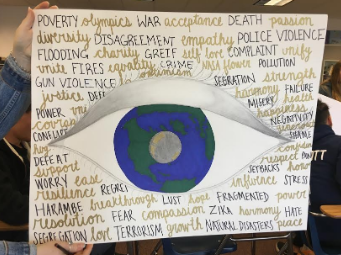 POVERTY olympics WAR acceptance DEATH passion
diversity DISAGREEMENT empathy POLICE VIOLENCE
FLOODING charity GREIF self love COMPLAINT unify
unite FIRES equality CRIME NASA flower POLLUTION
GUN VIOLENCE optimism SEPERATION strength
justice harmony FAILURE
POWER MISERY health
courage happiness
NEGITIVITY
SHAME
DEFEAT respect
support SETBACKS
WORRY ease influence STRESS
resilience REGRETS LUST hope FRAGMENTED power
HARAMBE breakthrough
resolution FEAR compassion ZIKA harmony HATE
SEGREGATION love TERRORISM growth NATURAL DISASTERS peace